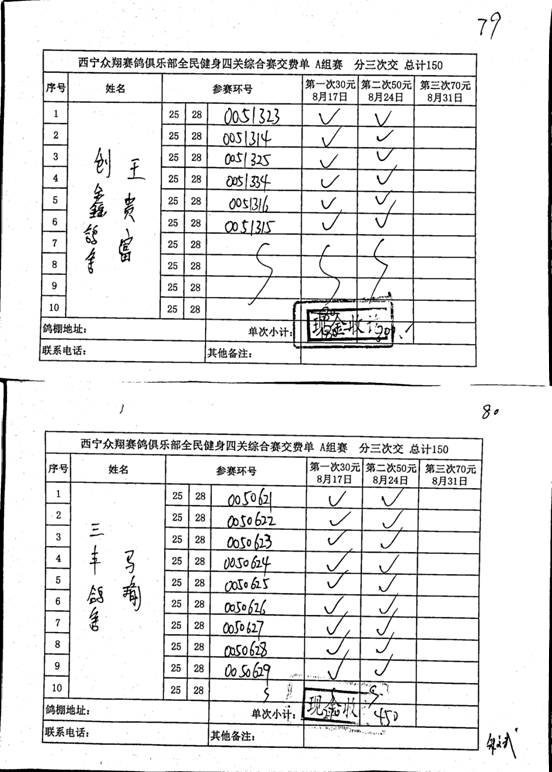 79
西宁众翔赛鸽俱乐部全民健身四关综合赛交费单 A组赛 分三次交 总计150
序号 姓名 参赛环号 第一次30元 8月17日 第二次50元 8月24日 第三次70元 8月31日
1 25 28 0051323 ✓ ✓
2 25 28 0051314 ✓ ✓
3 25 28 0051325 ✓ ✓
4 25 28 0051334 ✓ ✓
5 25 28 0051316 ✓ ✓
6 25 28 0051315 ✓ ✓
7 25 28
8 25 28
9 25 28
10 25 28
创鑫鸽舍
王贵富
鸽棚地址： 单次小计： 现金收讫 300
联系电话： 其他备注：
80
西宁众翔赛鸽俱乐部全民健身四关综合赛交费单 A组赛 分三次交 总计150
序号 姓名 参赛环号 第一次30元 8月17日 第二次50元 8月24日 第三次70元 8月31日
1 25 28 0050621 ✓ ✓
2 25 28 0050622 ✓ ✓
3 25 28 0050623 ✓ ✓
4 25 28 0050624 ✓ ✓
5 25 28 0050625 ✓ ✓
6 25 28 0050626 ✓ ✓
7 25 28 0050627 ✓ ✓
8 25 28 0050628 ✓ ✓
9 25 28 0050629 ✓ ✓
10 25 28
三丰鸽舍
鸽棚地址： 单次小计： 现金收 450
联系电话： 其他备注：